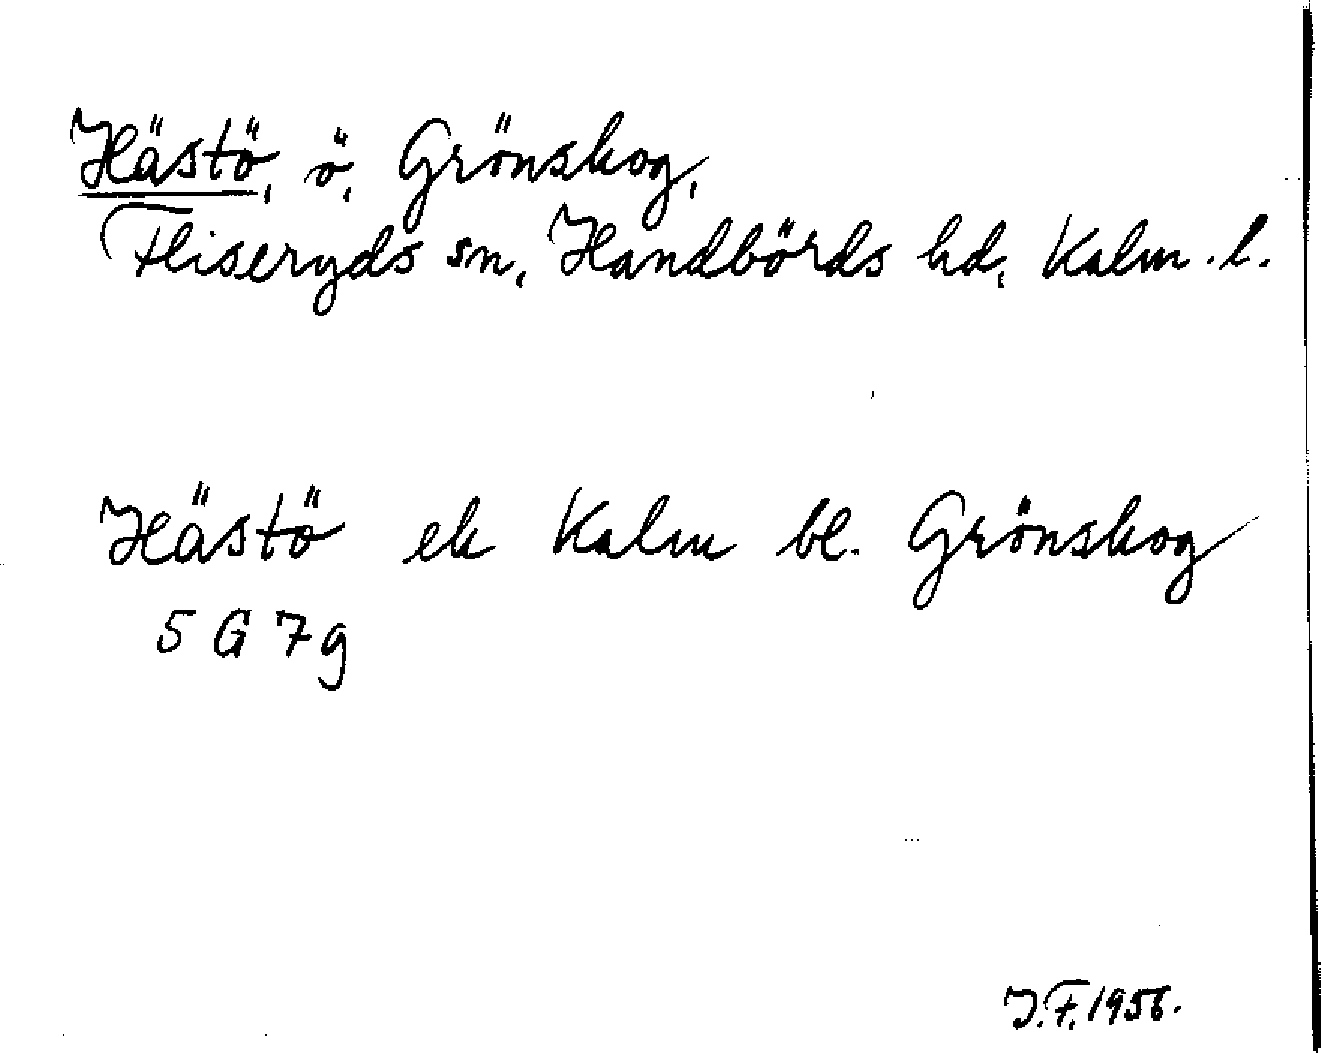 Hästö, ö, Grönskog,
Fliseryds sn, Handbörds hd, Kalm. l.
Hästö ek Kalm bl. Grönskog
5 G 7 g
J.F. 1956.